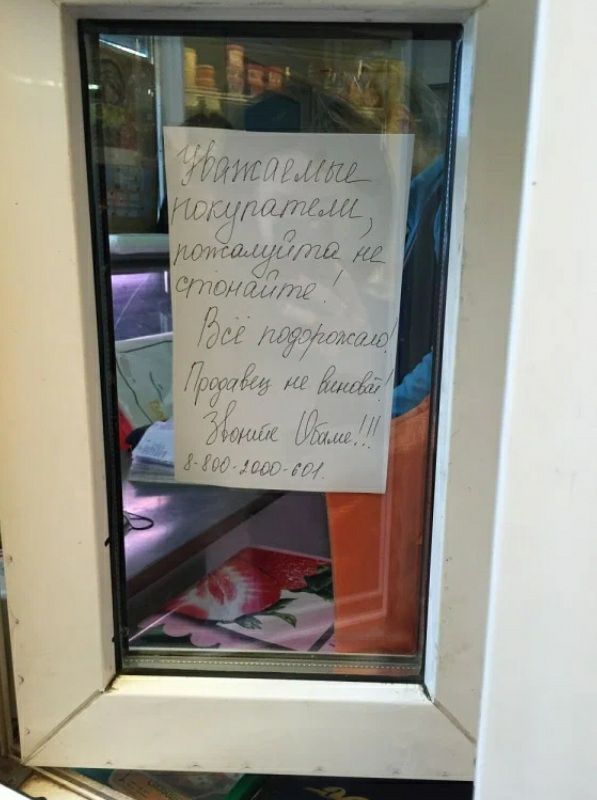 Уважаемые
покупатели,
пожалуйта не
стонайте!
Всё подорожало!
Продавец не виноват!
Звоните Обаме!!!
8-800-2000-601.